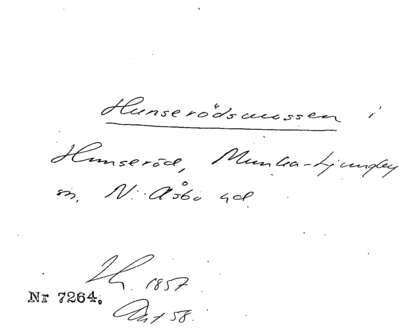 Hunserödsmossen i
Hunseröd, Munka-Ljungby
sn, N. Åsbo hd
1857
Nr 7264.
Ant 58.